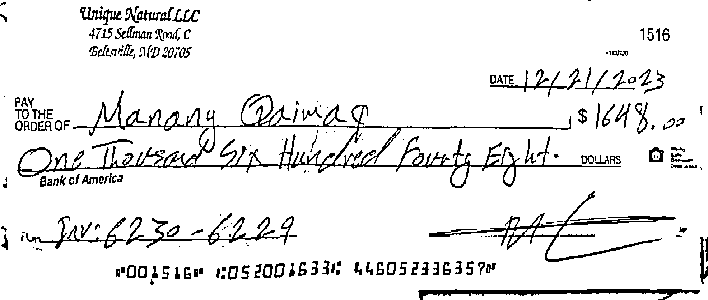 Unique Natural LLC
4715 Sellman Road, C
Beltsville, MD 20705
1516
DATE 12/21/2023
PAY
TO THE
ORDER OF Manang
$ 1648.00
One Thousand Six Hundred Fourty Eight. DOLLARS
Bank of America
INV: 6230-6229
⑈001516⑈ ⑆052001633⑆ 446052336357⑈